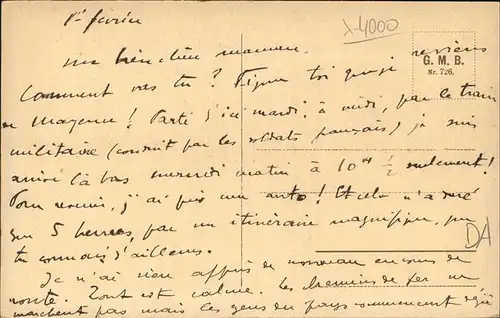 1er février
X-4000
G. M. B.
Nr. 726.
ma bien chère maman.
Comment vas tu ? Figure toi que je reviens
de Mayence ! Parti d'ici mardi, à midi, par le train
militaire (conduit par les soldats français) je suis
arrivé là bas mercredi matin à 10H 1/2 seulement !
Pour revenir, j'ai pris une auto ! Et cela n'a duré
que 5 heures, par un itinéraire magnifique, que
tu connais d'ailleurs.
DA
Je n'ai rien appris de nouveau en cours de
route. Tout est calme. Les chemins de fer ne
marchent pas mais les gens du pays commencent déjà